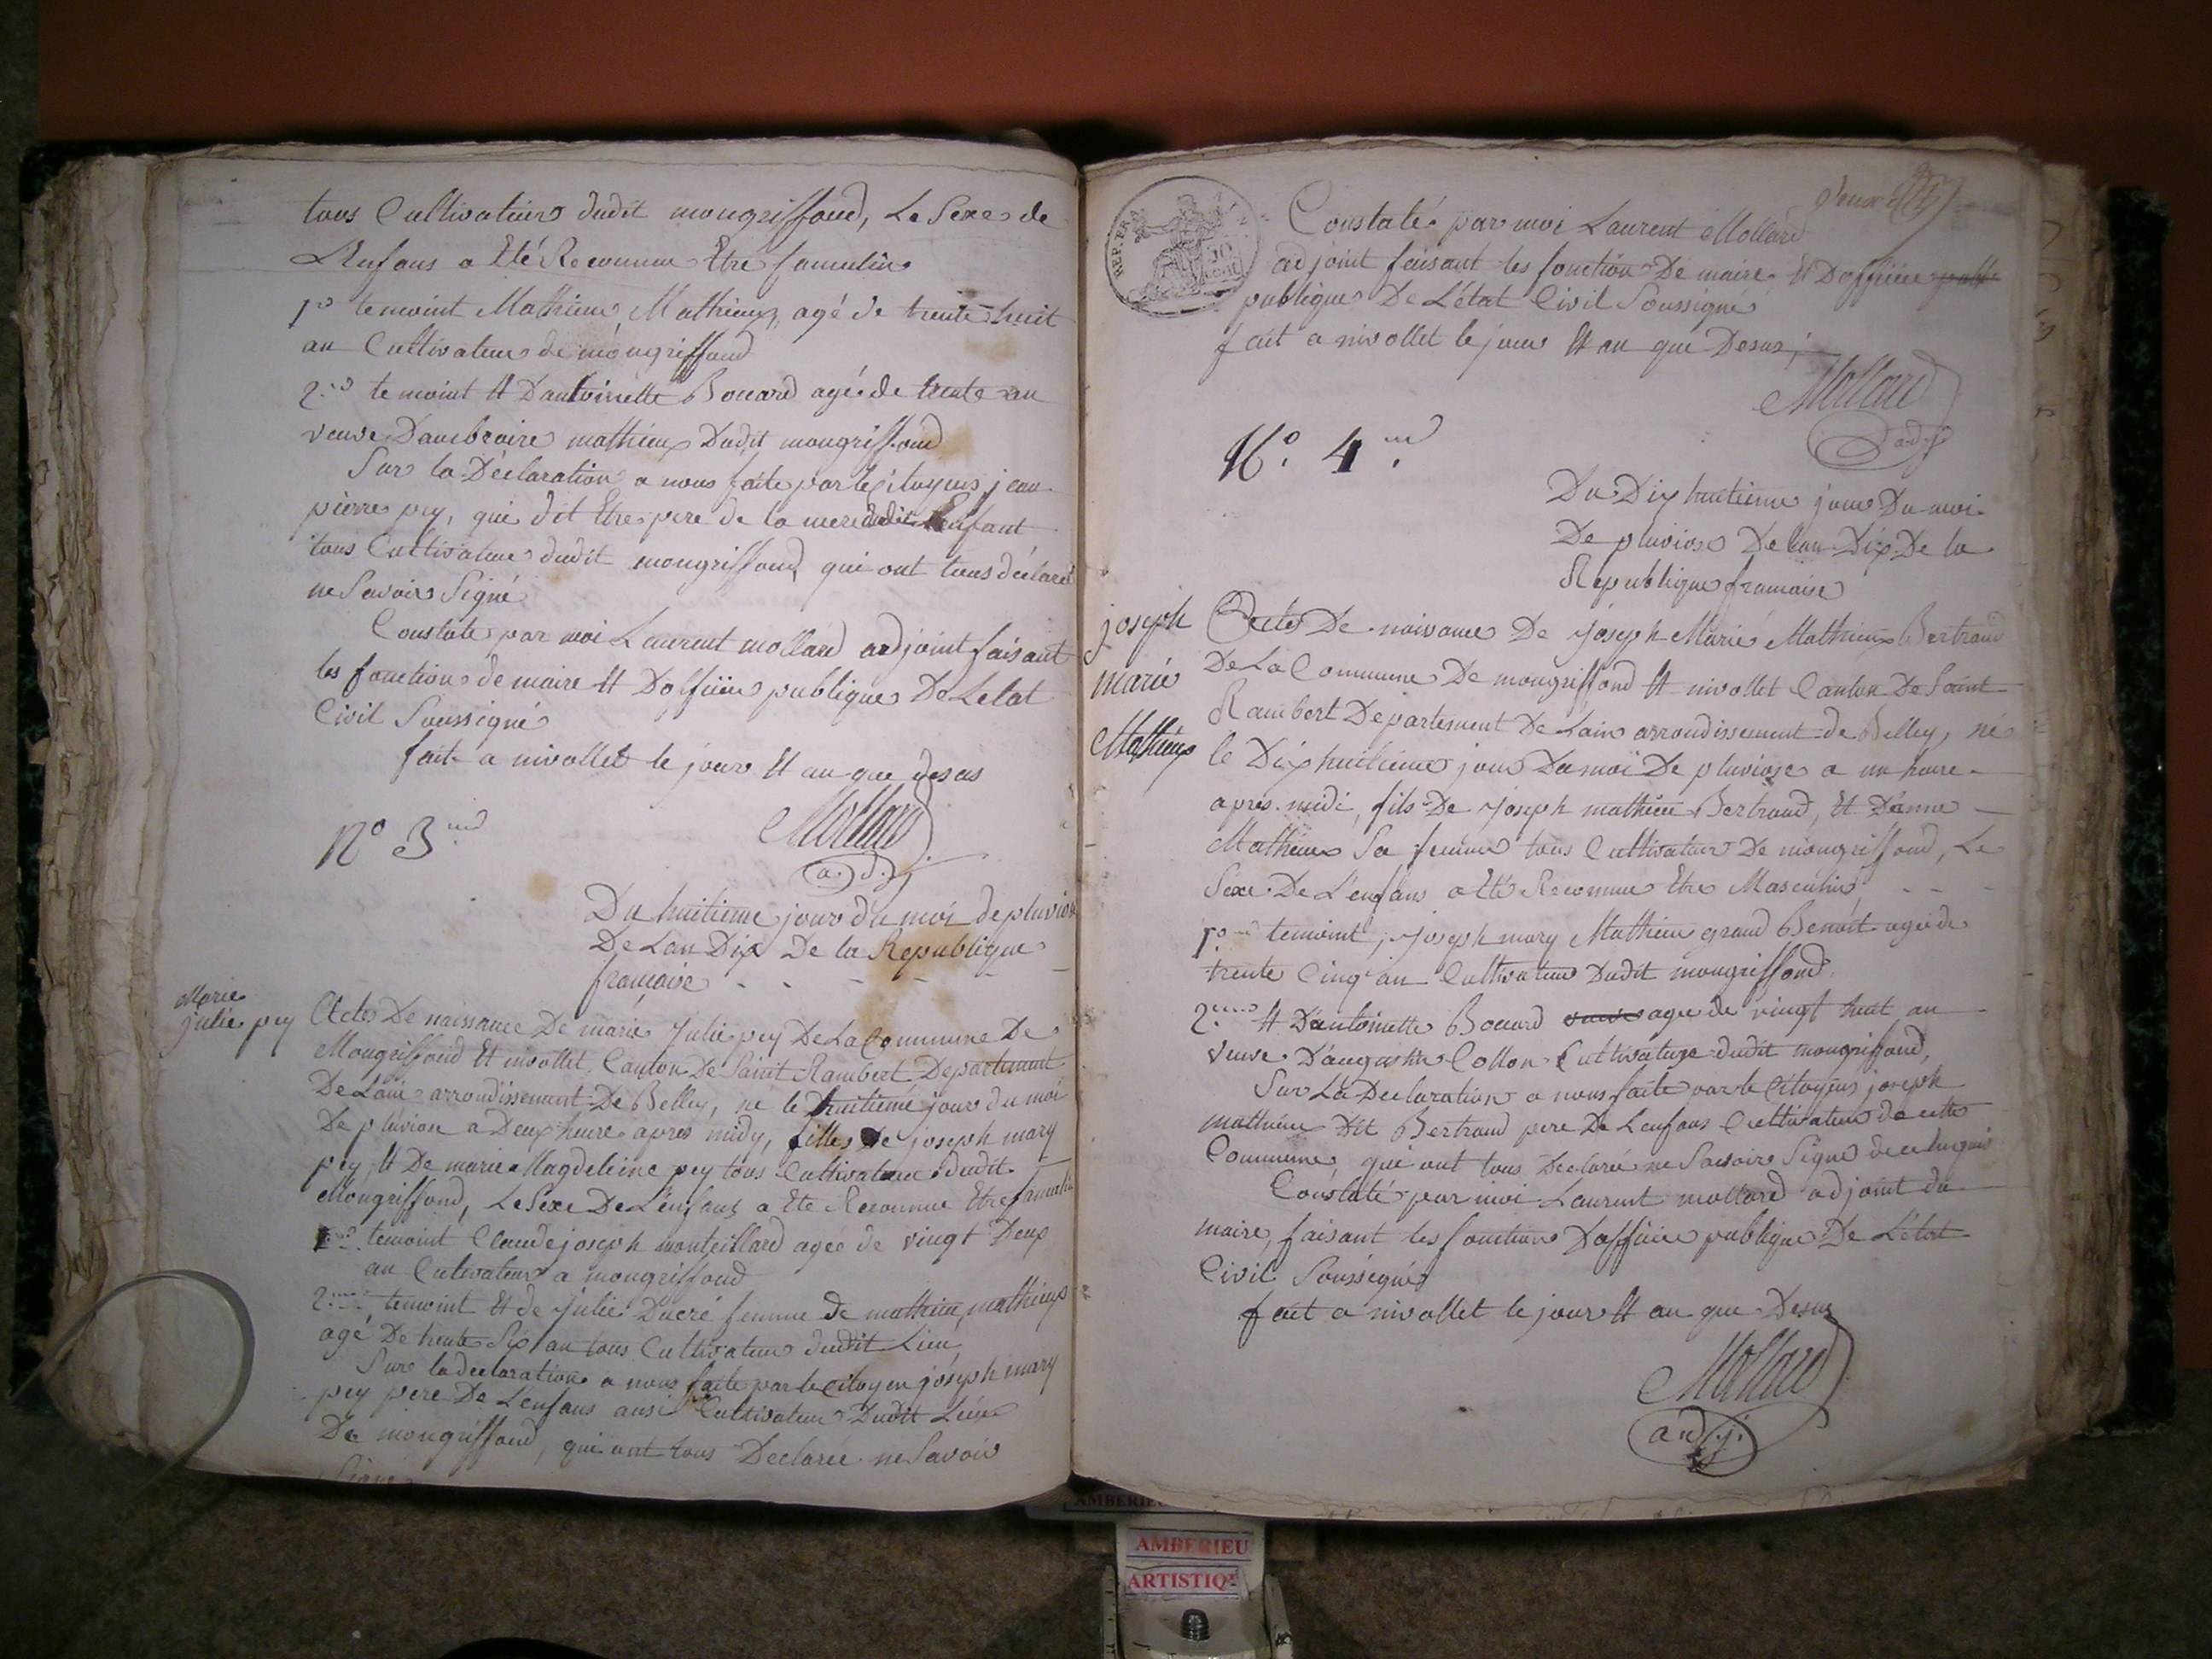 tous Cultivateurs dudit mongriffond, Le Sexe de
L'Enfans a Eté Reconnue Etre famulin
1er temoint Mathieu Mathieux, agé de trente huit
an Cultivateur de mongriffond
2nd temoint Et D'antoinette Bouard agé de trente an
veuve D'ambroire mathieux Dudit mongriffond
Sur la Déclaration a nous faite par le Citoyens jean
pierre pey, qui dit Etre pere de la mere dudit Enfant
tous Cultivateur dudit mongriffond, qui ont tous déclaré
ne Savoir Signé
Constate par moi Laurent mollard adjoint faisant
les fonction de maire Et Dofficier publique De Letat
Civil Soussigné
fait a nivollet le jour Et an que desus
Mollard
adj
No 3me
Du huitieme jour du moi de pluviose
De Lan Dix De la Republique
française
Marie
julie pey
Acte De naissance De marie Julie pey De La Commune De
Mongriffond Et nivollet, Canton De Saint Rambert Departement
De Lain arrondissement De Belley, ne le huitieme jour du moi
De pluviose a Deux heure apres midy, filles De joseph mary
pey, Et De marie Magdeleine pey tous Cultivateur dudit
Mongriffond, Le Sexe De L'enfans a Ete Reconnue Etre famulin
1er temoint Claude joseph monteillard ageé de vingt Deux
an Cultivateur a mongriffond
2me temoint Et de Julie Ducré femme de mathieu mathieux
agé De trente Six an tous Cultivateur dudit Lieu
Sur la declaration a nous faite par le Citoyen joseph mary
pey pere De L'enfans ausi Cultivateur Dudit Lieu
De mongriffond, qui ont tous Declaree ne Savoir
Signe
REP. FRA.
50
deux
Constaté par moi Laurent Mollard
adjoint faisant les fonction De maire Et Dofficier
publique De L'état Civil Soussigné
fait a nivollet le jour Et an que Desus
Mollard
adj
No. 4me
Du Dix huitieme jour Du moi
De pluviose De lan Dix De la
Republique francaise
joseph
marie
Mathieux
Acte De naisance De Joseph Marie Mathieux Bertrand
De La Commune De mongriffond Et nivollet Canton De Saint
Rambert Departement De Lain arrondissement de Belley, né
le Dix huitieme jour Du moi De pluviose a un heure
apres midi, fils De Joseph mathieu Bertrand, Et D'anne
Mathieux Sa femme tous Cultivateur De mongriffond, Le
Sexe De L'enfans a Eté Reconnue Etre Masculin
1er temoint, Joseph mary Mathieu grand Benoit ageé de
trente Cinq an Cultivateur Dudit mongriffond
2me Et D'antoinette Bouard veuve ageé de vingt huit an
veuve D'augustin Collon Cultivature dudit mongriffond,
Sur La Declaration a nous faite par le Citoyens joseph
mathieu Dit Bertrand pere De Lenfans Cultivateur de cette
Commune, qui ont tous Declareé ne Savoir Signé de ce Requis
Constaté par moi Laurent mollard adjoint du
maire, faisant les fonction D'officier publique De L'état
Civil Soussigné
fait a nivollet le jour Et an que Desus
Mollard
adj
AMBERIEU
AMBERIEU
ARTISTIQ